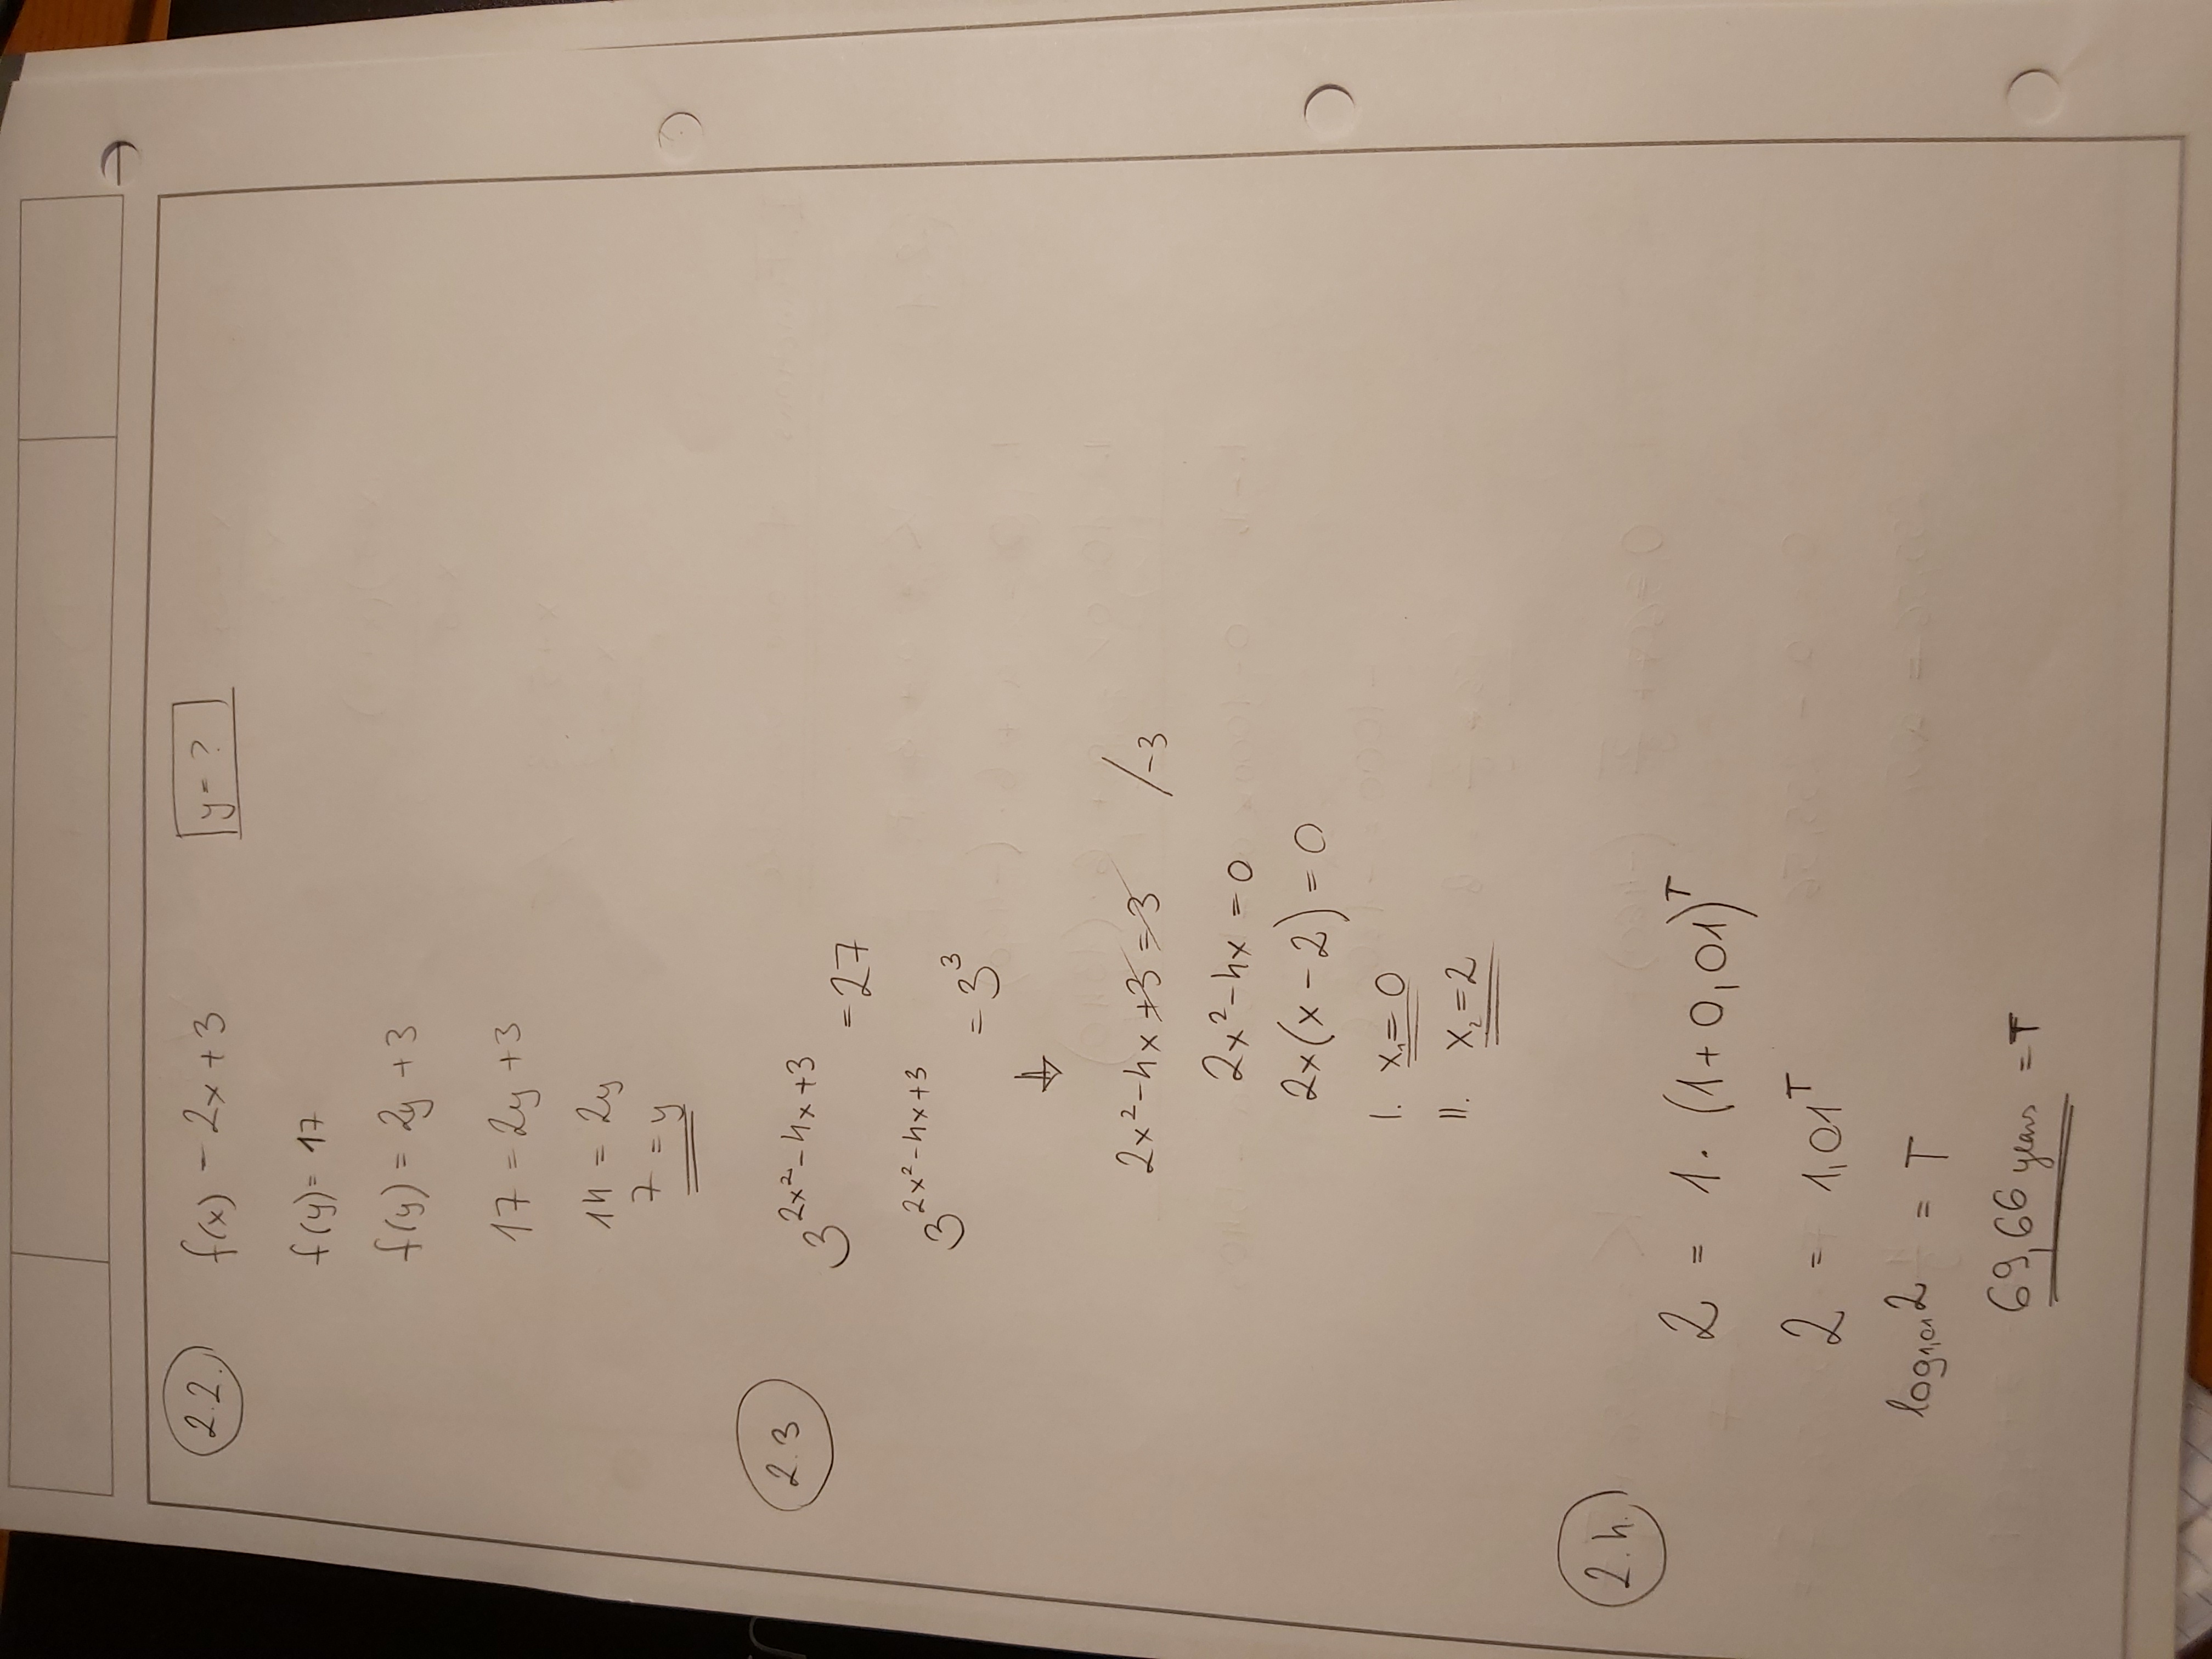 2.2. f(x) - 2x + 3 y = ?
f(y) = 17
f(y) = 2y + 3
17 = 2y + 3
14 = 2y
7 = y
2.3 3^(2x² - 4x + 3) = 27
3^(2x² - 4x + 3) = 3³
⇓
2x² - 4x + 3 = 3 / -3
2x² - 4x = 0
2x(x - 2) = 0
I. x₁ = 0
II. x₂ = 2
2.4.
2 = 1 · (1 + 0,01)^T
2 = 1,01^T
log₁,₀₁ 2 = T
69,66 years = T